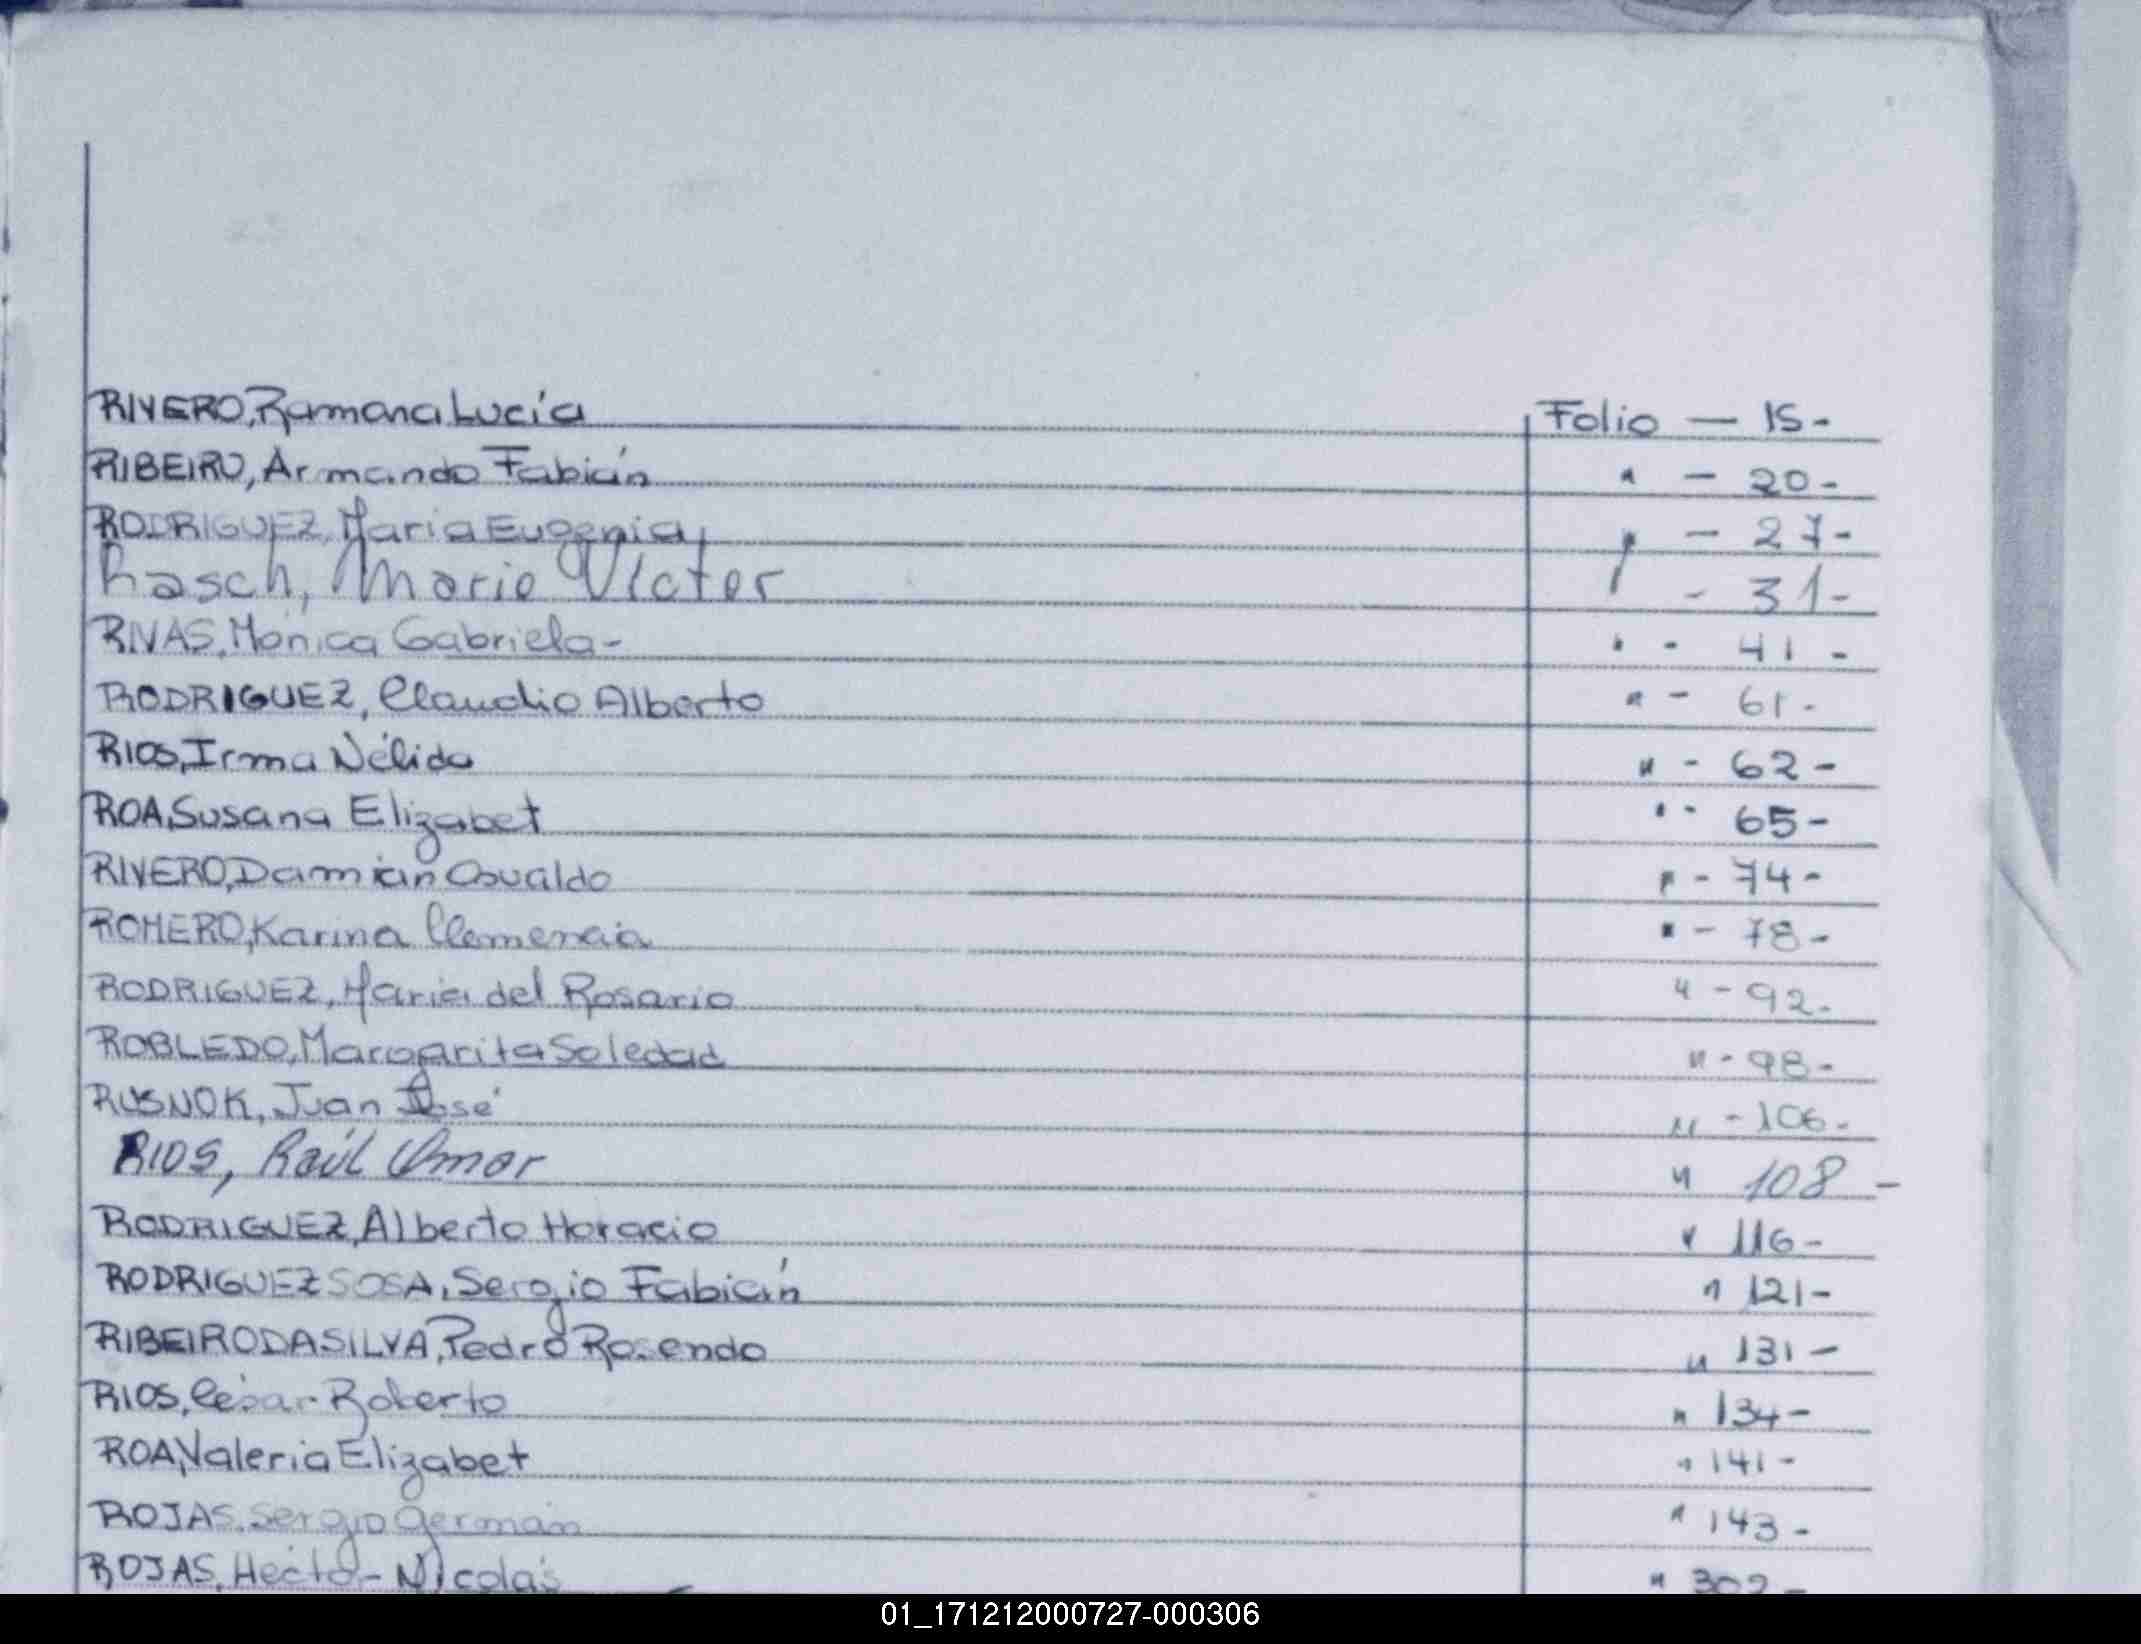 RIVERO, Ramona Lucía Folio — 15-
RIBEIRO, Armando Fabián " - 20-
RODRIGUEZ, María Eugenia " - 27-
Rasch, Mario Victor - 31-
RIVAS, Mónica Gabriela- " - 41 -
RODRIGUEZ, Claudio Alberto " - 61-
RIOS, Irma Nélida " - 62-
ROA, Susana Elizabet " - 65-
RIVERO, Damián Osvaldo " - 74-
ROMERO, Karina Clemencia " - 78-
RODRIGUEZ, María del Rosario " - 92-
ROBLEDO, Margarita Soledad " - 98-
RUSNOK, Juan José " - 106-
RIOS, Raúl Omar " 108 -
RODRIGUEZ, Alberto Horacio " 116-
RODRIGUEZ SOSA, Sergio Fabián " 121-
RIBEIRO DA SILVA, Pedro Rosendo " 131-
RIOS, César Roberto " 134-
ROA, Valeria Elizabet " 141-
ROJAS, Sergio Germán " 143-
ROJAS, Hector Nicolás " 302-
01_171212000727-000306